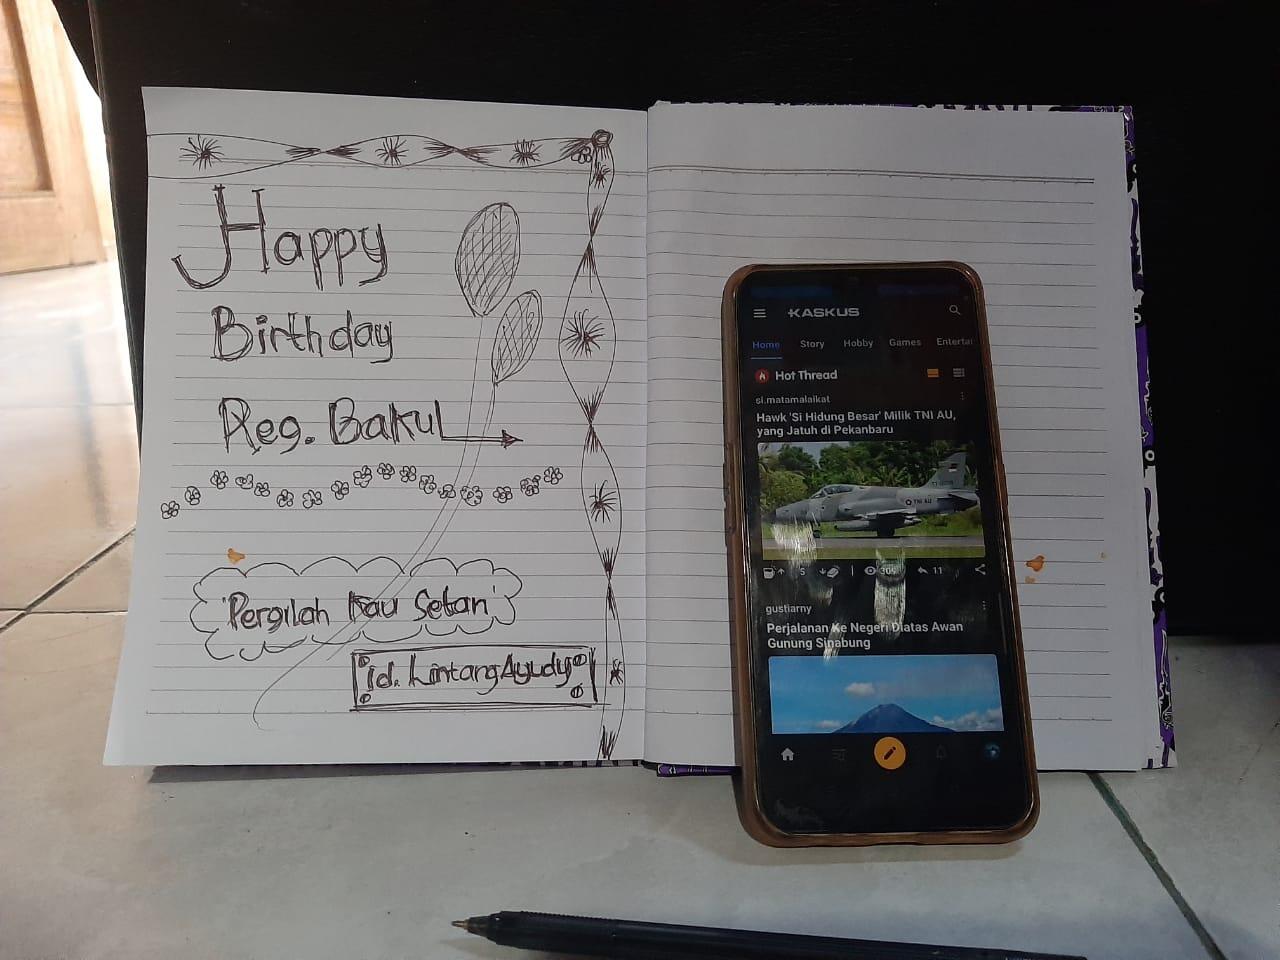 Happy
Birthday
Reg. Bakul
"Pergilah Kau Setan"
id. LintangAyudy
KASKUS
Home Story Hobby Games Entertai
Hot Thread
si.matamalaikat
Hawk 'Si Hidung Besar' Milik TNI AU,
yang Jatuh di Pekanbaru
TNI AU
5 309 11
gustiarny
Perjalanan Ke Negeri Diatas Awan
Gunung Sinabung